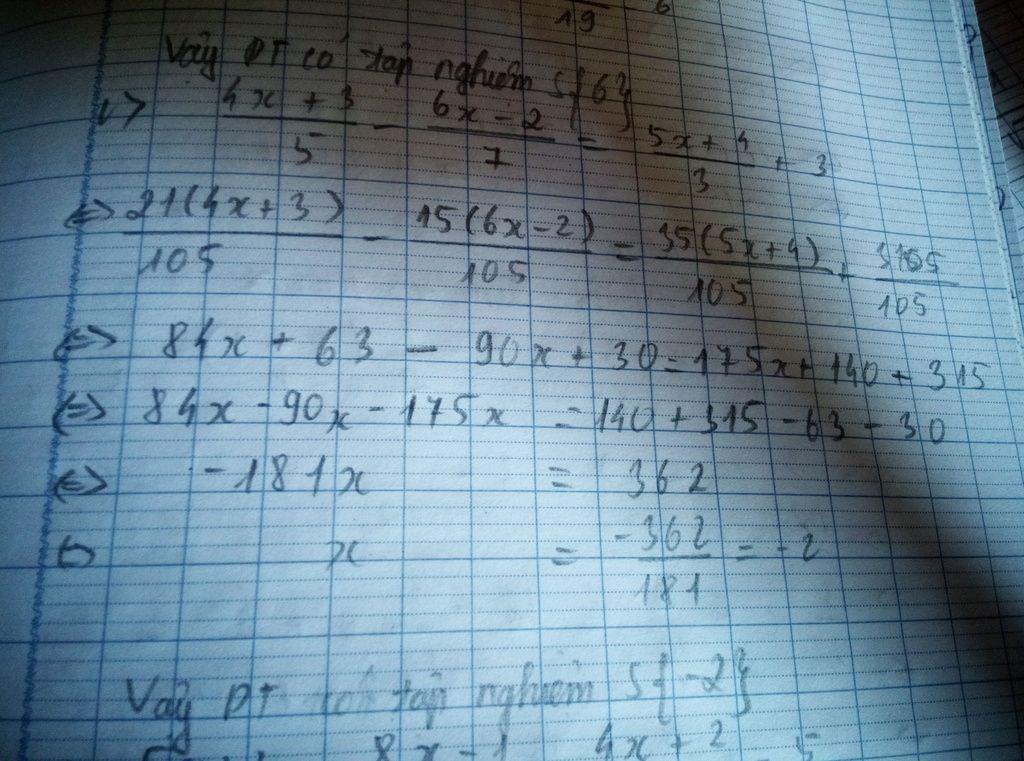 19 6
Vậy PT có tập nghiệm S{6}
(4x + 3)/5 - (6x - 2)/7 = (5x + 4)/3 + 3
<=> 21(4x+3)/105 - 15(6x-2)/105 = 35(5x+4)/105 + 315/105
<=> 84x + 63 - 90x + 30 = 175x + 140 + 315
<=> 84x - 90x - 175x = 140 + 315 - 63 - 30
<=> -181x = 362
x = -362/181 = -2
Vậy PT có tập nghiệm S{-2}
8x - 1 4x + 2 5